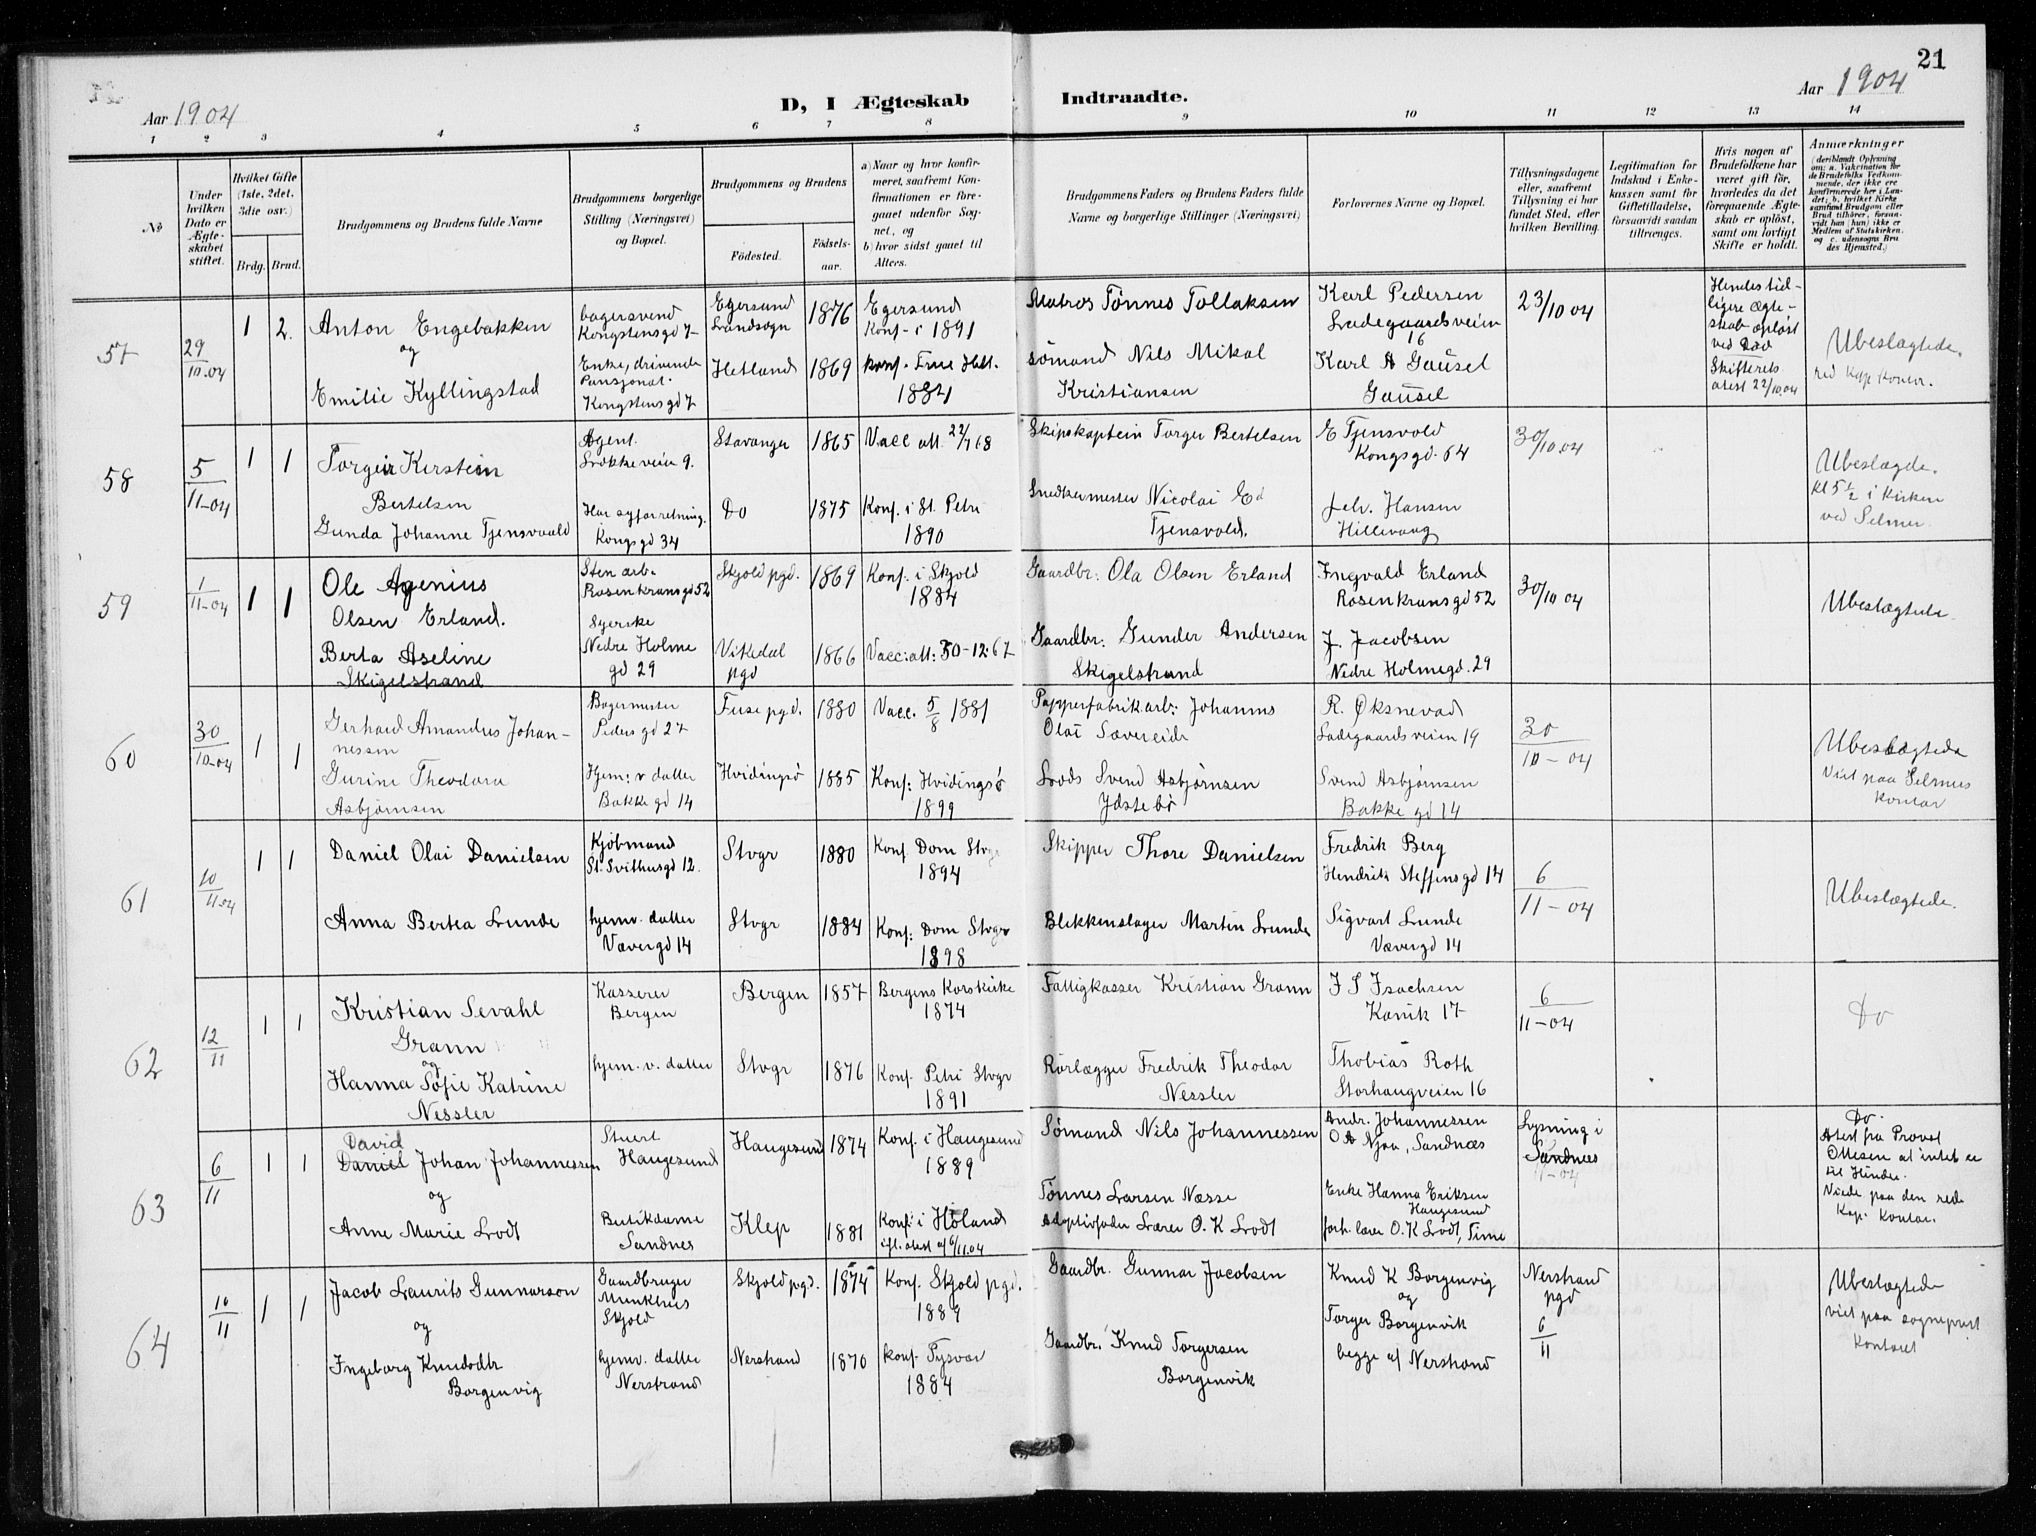 21
Aar 1904
D, I Ægteskab Indtraadte.
Aar 1904
1 2 3 4 5 6 7 8 9 10 11 12 13 14
№
Under hvilken Dato er Ægteskabet stiftet.
Hvilket Gifte (1ste, 2det. 3die osv.)
Brdg. Brud.
Brudgommens og Brudens fulde Navne
Brudgommens borgerlige Stilling (Næringsvei) og Bopæl.
Brudgommens og Brudens
Födested.
Födsels-aar.
a) Naar og hvor konfirmeret, saafremt Konfirmationen er foregaaet udenfor Sognet, og
b) hvor sidst gaaet til Alters.
Brudgommens Faders og Brudens Faders fulde Navne og borgerlige Stillinger (Næringsvei)
Forlovernes Navne og Bopæl.
Tillysningsdagene eller, saafremt Tillysning ei har fundet Sted, efter hvilken Bevilling.
Legitimation for Indskud i Enkekassen samt for Giftetilladelse, forsaavidt saadan tiltrænges.
Hvis nogen af Brudefolkene har været gift før, hvorledes da det foregaaende Ægteskab er opløst, samt om lovligt Skifte er holdt.
Anmerkninger
(deriblandt Oplysning om: a. Vakcination for de Brudefolks Vedkommende, der ikke ere konfirmerede her i Landet; b. hvilket Kirkesamfund Brudgom eller Brud tilhører, forsaavidt han (hun) ikke er Medlem af Statskirken. og c. udensogns Brudes Hjemsted.)
57
29/10.04
1 2.
Anton Engebakken
og
Emilie Kyllingstad
bagersvend
Kongstensgd 7
Enke, drivende
Pansjonat.
Kongstensgd 7
Egersund
Landsogn
Hetland
1876
1869
Egersund
Konf- i 1891
konf. Frue Hetl.
1884
Matros Tönnes Tollaksen
sömand Nils Mikal
Kristiansen
Karl Pedersen
Ladegaardsveien
16
Karl A Gausel
Gausel
23/10 04
Hendes tid-
ligere ægte-
skab opløst
ved Død
Skifterets
attest 22/10.04
Ubeslægtede.
58
5/11-04
1 1
Torgeir Kerstein
Bertelsen
Gunda Johanne Tjensvoold
Agent.
Løkkeveien 9.
Har syforretning.
Kongsgd 34
Stavanger
Do
1865
1875
Vacc att. 22/7 68
Konf. i St. Petri
1890
Skipskaptein Torger Bertelsen
Snedkermester Nicolai Ed
Tjensvold.
E Tjensvold
Kongsgd. 64
Joh. Hansen
Hillevaag
30/10.04
Ubeslægde.
kl 5 1/2 i Kirken
ved Selmer.
59
1/11-04
1 1
Ole Agenius
Olsen Erland.
Berta Aseline
Skigelstrand
Sten arb.
Rosenkransgd 52
Syerske
Nedre Holme
gd 29
Skjold pgd.
Vikedal
pgd
1869
1866
Konf. i Skjold
1884
Vacc: att: 30-12-67
Gaardbr: Ola Olsen Erland
Gaardbr. Gunder Andersen
Skigelstrand
Ingvald Erland
Rosenkransgd 52
J. Jacobsen
Nedre Holmegd. 29
30/10 04
Ubeslægtede
60
30/10-04
1 1
Gerhard Amandus Johan-
nessen
Gurine Theodora
Asbjørnsen
Bagermester
Pedersgd 27
Hjem: v datter
Bakkegd 14
Fusepgd.
Hvidingsø
1880
1885
Vacc. 5/8 1881
Konf: Hvidingsø
1899
Papperfabrikarb: Johannes
Olai Sævereide
Lods Svend Asbjørnsen
Ydstebö
R. Øksnevad
Ladegaardsveien 19
Svend Asbjørnsen
Bakke gd 14
30
10-04
Ubeslægtede
Viet paa Selmers
kontor
61
10/11.04
1 1
Daniel Olai Danielsen
Anna Bertea Lunde
Kjöbmand
St. Svithusgd 12.
hjemv. datter
Vævergd 14
Stvgr
Stvgr
1880
1884
Konf Dom Stvgr
1894
Konf: Dom Stvgr
1898
Skipper Thore Danielsen
Blikkenslager Martin Lunde
Fredrik Berg
Hendrik Steffensgd 14
Sigvart Lunde
Vævergd 14
6
11-04
Ubeslægtede.
62
12/11
1 1
Kristian Sevahl
Grann
og
Hanna Sofie Katrine
Nessler
Kasserer
Bergen
hjem. v. datter
Bergen
Stvgr
1857
1876
Bergens Korskirke
1874
Konf. Petri Stvgr
1891
Fattigkasser Kristian Grann
Rørlægger Fredrik Theodor
Nessler
J S Isachsen
Kanik 17
Thobias Roth
Storhaugveien 16
6
11-04
Do
63
6/11
1 1
David
Daniel Johan Johannessen
og
Anne Marie Lodt
Stuert
Haugesund
Butikdame
Sandnes
Haugesund
Klep
1874
1881
Konf. i Haugesund
1889
Konf: i Höland
ifl. attest af 6/11.04
Sømand Nils Johannessen
Tönnes Larsen Næsse
Adoptivfader Lærer O. K Lodt
Andr. Johannessen
O A Njaa, Sandnæs
Enke Hanna Eriksen
Haugesund
forh. lærer O. K Lodt, Time
Lysning i
Sandnes
Do.
Atest fra Provst
Ottesen at intet er
til Hinder.
Viede paa den red.
Kap. Kontor.
64
10/11
1 1
Jacob Laurits Gunnarson
og
Ingeborg Knudsdtr
Borgenvig
Gaardbruger
Munkhus
Skjold
hjemv. datter
Nerstrand
Skjold pgd.
Nerstrand
1874
1870
Konf. Skjold pgd.
1889
konf Tysvær
1884
Gaardbr. Gunnar Jacobsen
Gaardbr. Knud Torgersen
Borgenvik
Knud K Borgenvig
og
Torger Borgenvik
begge af Nerstrand
Nerstrand
pgd
6/11
Ubeslægtede
viet paa sogneprest
kontoret